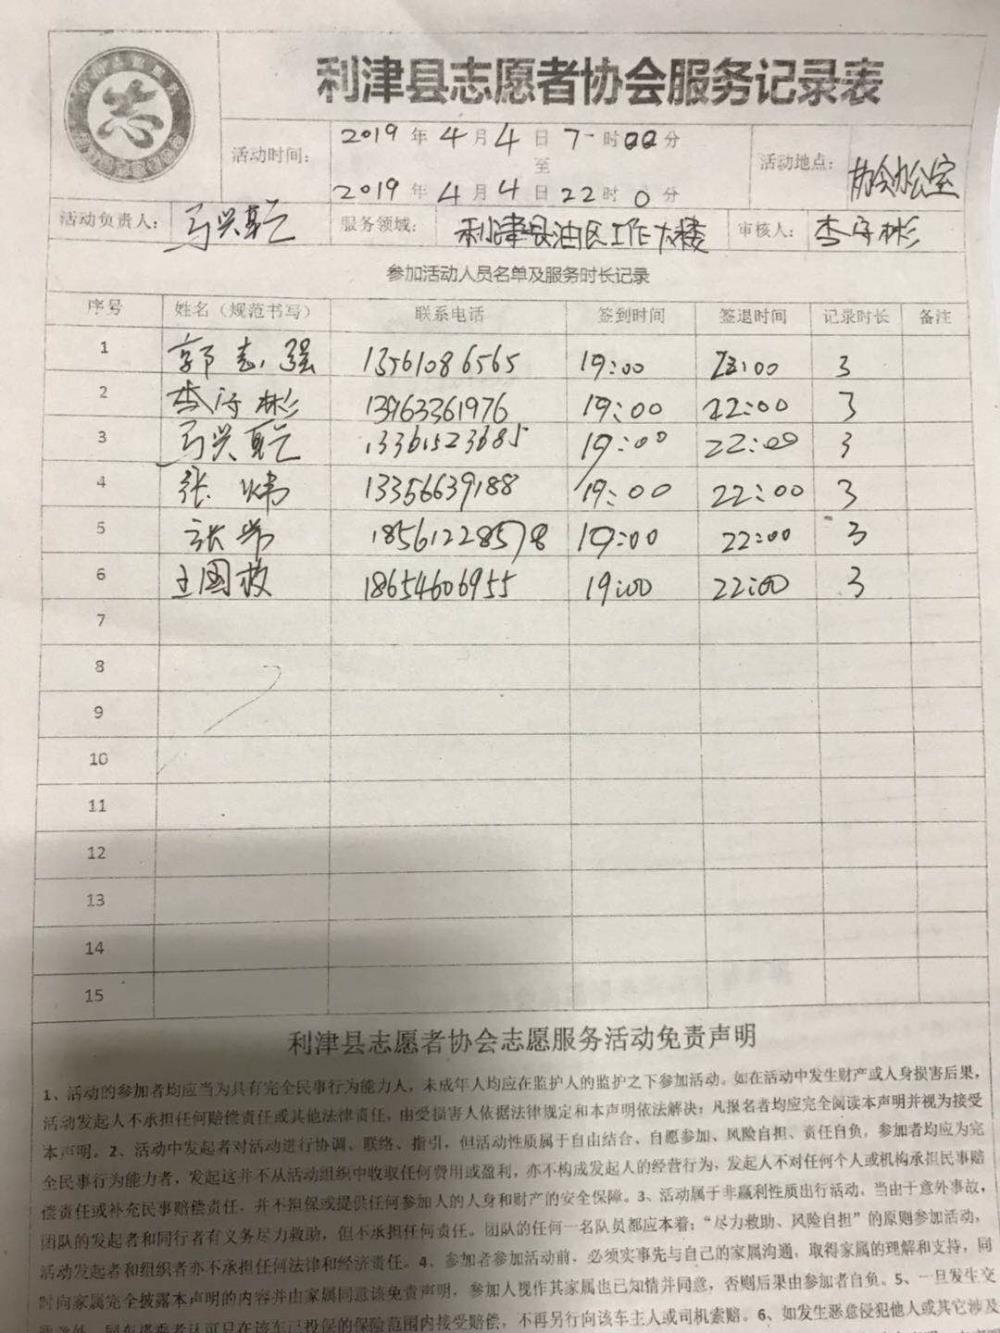 利津县志愿者协会服务记录表
活动时间： 2019 年 4 月 4 日 7 时 00 分
至
2019 年 4 月 4 日 22 时 0 分
活动地点： 协会办公室
活动负责人： 马兴 服务领域： 利津县油区工作大楼 审核人： 李守彬
参加活动人员名单及服务时长记录
序号 姓名（规范书写） 联系电话 签到时间 签退时间 记录时长 备注
1 郭志强 13561086565 19:00 22:00 3
2 李守彬 13963361976 19:00 22:00 3
3 马兴 13361523685 19:00 22:00 3
4 张炜 13356639188 19:00 22:00 3
5 张 18561228578 19:00 22:00 3
6 王国 18654606955 19:00 22:00 3
7
8
9
10
11
12
13
14
15
利津县志愿者协会志愿服务活动免责声明
1、活动的参加者均应当为具有完全民事行为能力人，未成年人均应在监护人的监护之下参加活动。如在活动中发生财产或人身损害后果，
活动发起人不承担任何赔偿责任或其他法律责任，由受损害人依据法律规定和本声明依法解决；凡报名者均应完全阅读本声明并视为接受
本声明。2、活动中发起者对活动进行协调、联络、指引，但活动性质属于自由结合、自愿参加、风险自担、责任自负，参加者均应为完
全民事行为能力者，发起这并不从活动组织中收取任何费用或盈利，亦不构成发起人的经营行为，发起人不对任何个人或机构承担民事赔
偿责任或补充民事赔偿责任，并不担保或提供任何参加人的人身和财产的安全保障。3、活动属于非赢利性质出行活动，当由于意外事故，
团队的发起者和同行者有义务尽力救助，但不承担任何责任。团队的任何一名队员都应本着：“尽力救助、风险自担”的原则参加活动，
活动发起者和组织者亦不承担任何法律和经济责任。4、参加者参加活动前，必须实事先与自己的家属沟通，取得家属的理解和支持，同
时向家属完全披露本声明的内容并由家属同意该免责声明，参加人视作其家属也已知情并同意，否则后果由参加者自负。5、一旦发生交
通意外，同车搭乘者认可只在该车已投保的保险范围内接受赔偿，不再另行向该车主人或司机索赔。6、如发生恶意侵犯他人或其它涉及